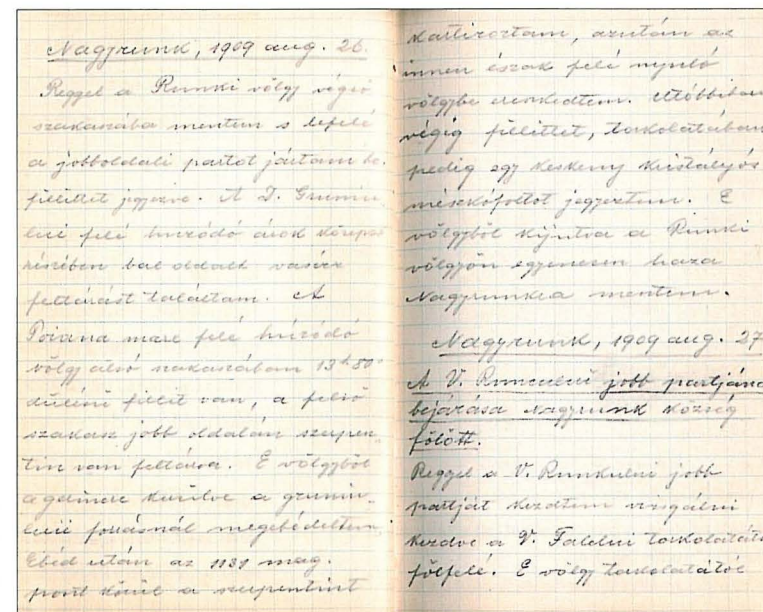 Nagyrunk, 1909 aug. 26.
Reggel a Runki völgy végső
szakaszába mentem s lefelé
a jobboldali partot jártam be,
fillitet jegyezve. A D. Gruniu-
lui felé húzódó árok középső
részében bal oldalt vasérc
feltárást találtam. A
Poiana mare felé húzódó
völgy alsó szakaszában 13ʰ 80°
dűlésű fillit van, a felső
szakasz jobb oldalán szerpen-
tin van feltárva. E völgyből
a gerincre kerülve a gruniu-
lui forrásnál megebédeltem.
Ebéd után az 1131 mag.
pont körül a szerpentint
kartiroztam, azután az
innen észak felé nyúló
völgybe ereszkedtem. Utóbbiban
végig fillittet, torkolatában
pedig egy keskeny kristályos
mészkőfoltot jegyeztem. E
völgyből kijutva a Runki
völgyön egyenesen haza
Nagyrunkra mentem.
Nagyrunk, 1909 aug. 27
A V. Runcului jobb partjána
bejárása Nagyrunk község
fölött.
Reggel a V. Runkului jobb
partját kezdtem vizsgálni
kezdve a V. torkolatátó
fölfelé. E völgy torkolatától